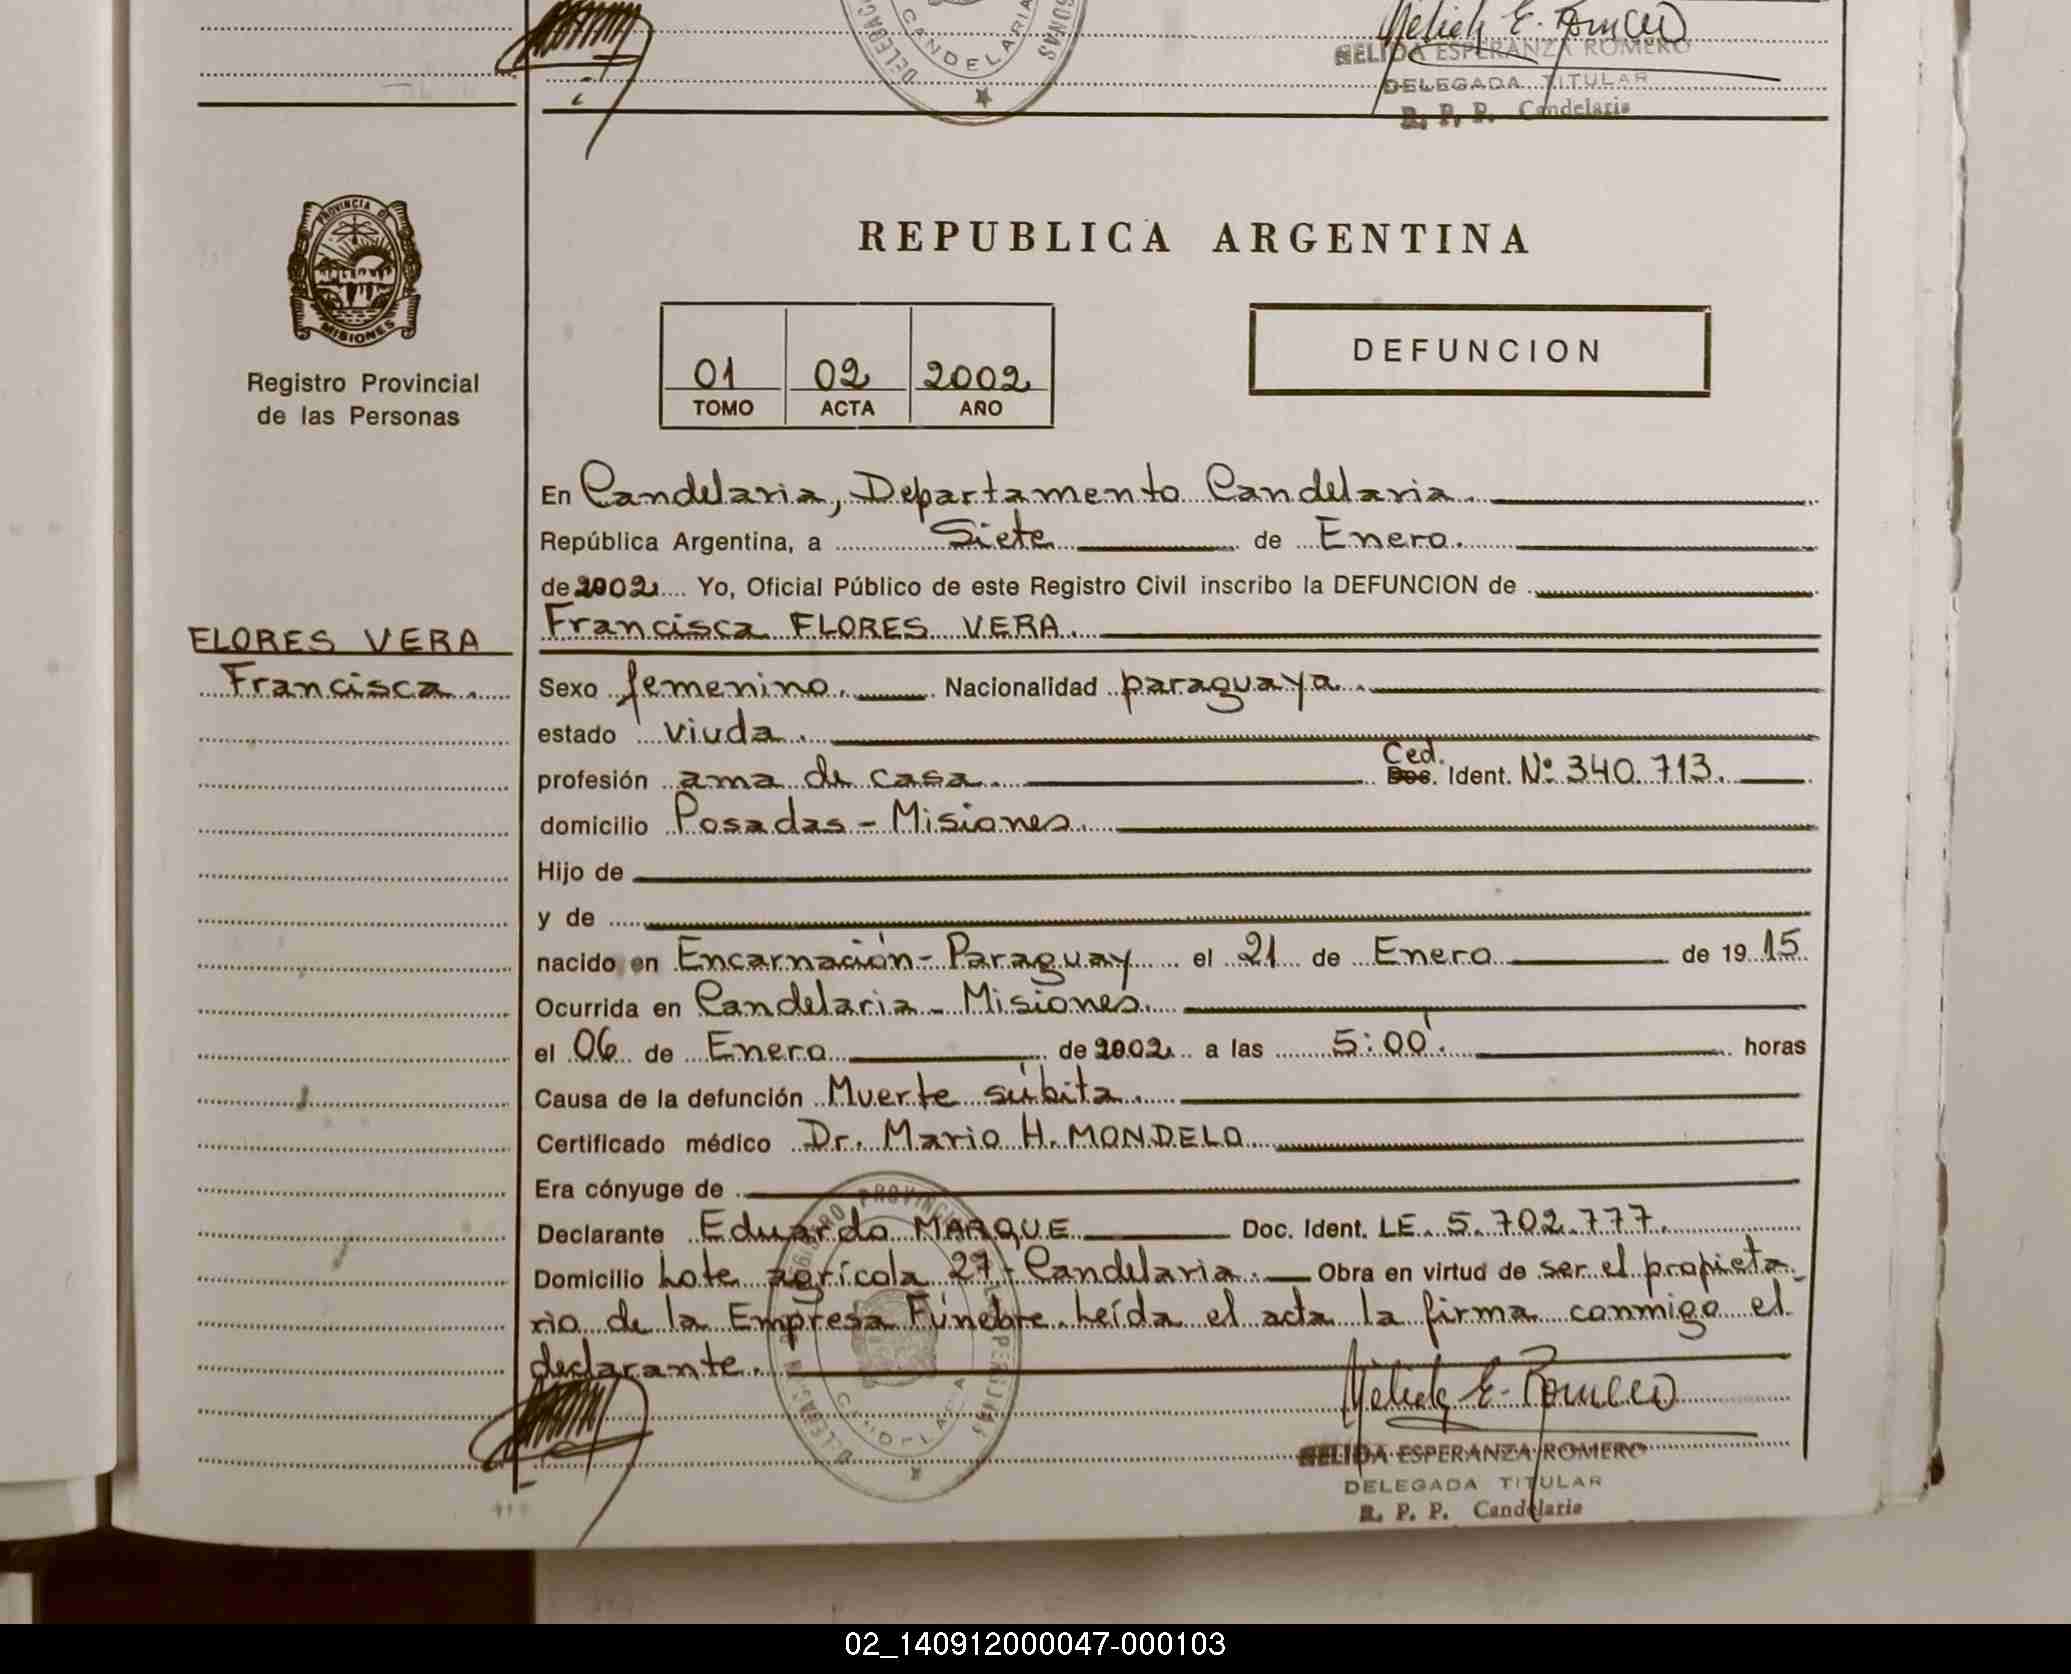 Nelida E. Romero
NELIDA ESPERANZA ROMERO
DELEGADA TITULAR
R. P. P. Candelaria
CANDELARIA
PROVINCIA DE
MISIONES
Registro Provincial
de las Personas
REPUBLICA ARGENTINA
01 02 2002
TOMO ACTA AÑO
DEFUNCION
En Candelaria, Departamento Candelaria.
República Argentina, a Siete de Enero.
de 2002 Yo, Oficial Público de este Registro Civil inscribo la DEFUNCION de
FLORES VERA
Francisca.
Francisca FLORES VERA.
Sexo femenino. Nacionalidad paraguaya.
estado viuda.
profesión ama de casa. Ced. Doc. Ident. Nº 340.713.
domicilio Posadas - Misiones.
Hijo de
y de
nacido en Encarnación - Paraguay el 21 de Enero de 19 15
Ocurrida en Candelaria - Misiones.
el 06 de Enero de 2002 a las 5:00'. horas
Causa de la defunción Muerte súbita.
Certificado médico Dr. Mario H. MONDELO
Era cónyuge de
Declarante Eduardo MARQUE Doc. Ident. LE. 5.702.777.
Domicilio Lote agrícola 27 - Candelaria. Obra en virtud de ser el propieta-
rio de la Empresa Fúnebre. Leída el acta la firma conmigo el
declarante.
Nelida E. Romero
NELIDA ESPERANZA ROMERO
DELEGADA TITULAR
R. P. P. Candelaria
02_140912000047-000103